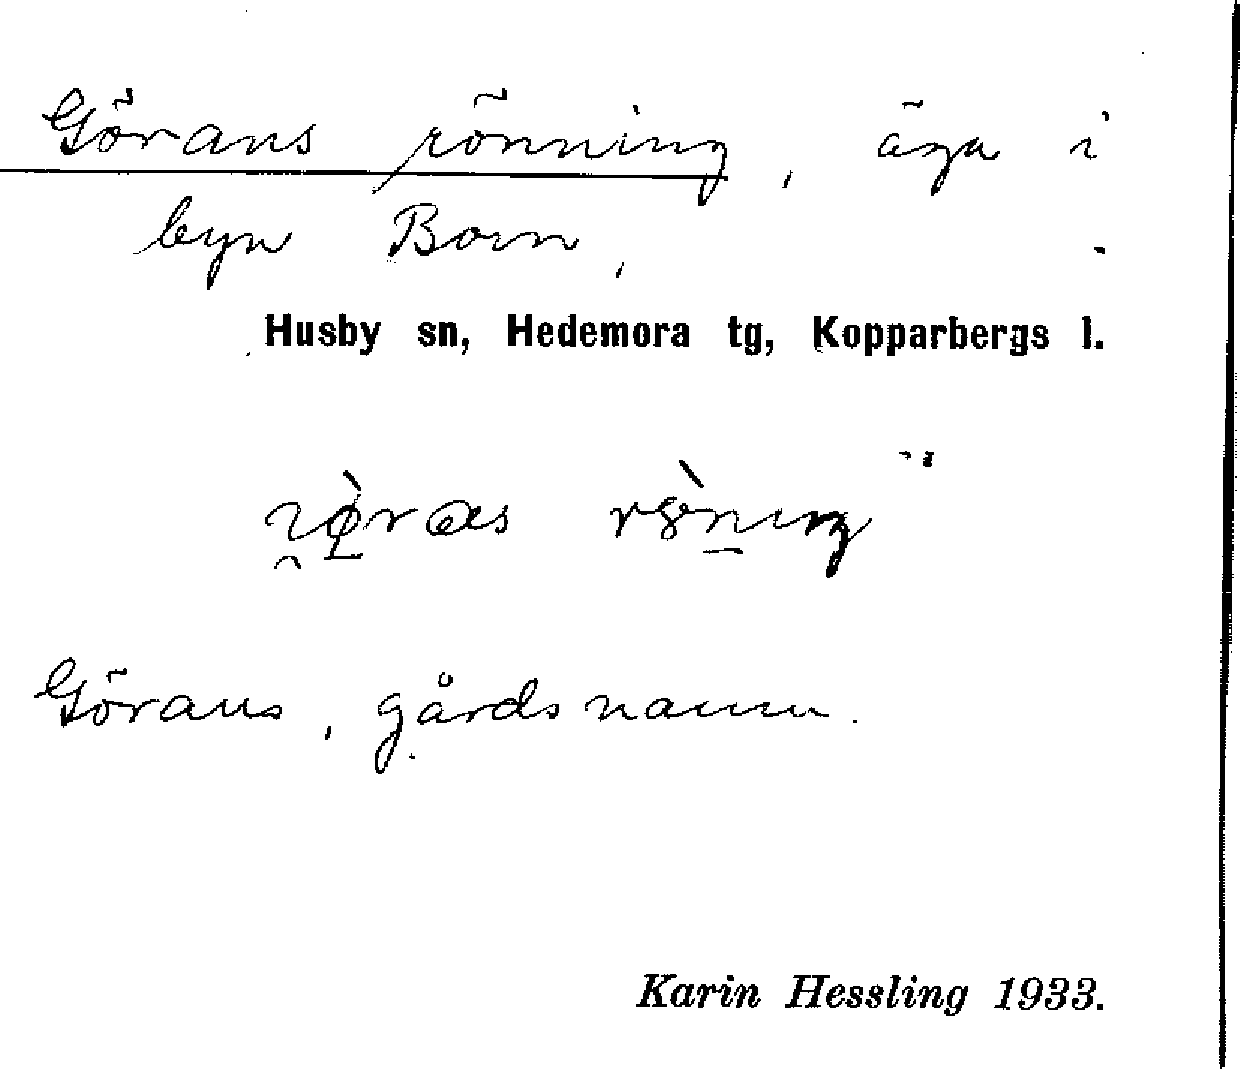 Görans rönning, äga i
byn Born,
Husby sn, Hedemora tg, Kopparbergs l.
Görans, gårdsnamn.
Karin Hessling 1933.